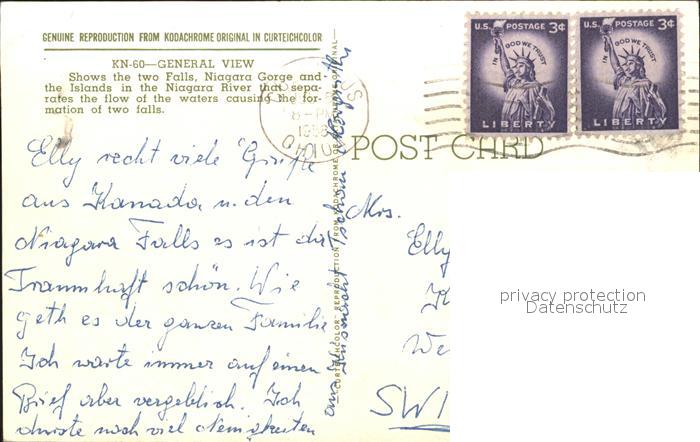 GENUINE REPRODUCTION FROM KODACHROME ORIGINAL IN CURTEICHCOLOR
KN-60—GENERAL VIEW
Shows the two Falls, Niagara Gorge and
the Islands in the Niagara River that sepa-
rates the flow of the waters causing the for-
mation of two falls.
U.S. POSTAGE 3¢
IN GOD WE TRUST
LIBERTY
U.S. POSTAGE 3¢
IN GOD WE TRUST
LIBERTY
8-PM
POST CARD
Elly recht viele Grüße
aus Kanada u. den
Niagara Falls es ist da
Traumhaft schön. Wie
geth es der ganzen Familie
Ich warte immer auf einen
Brief aber vergeblich. Ich
noch viel
Mrs.
Elly
We
SWI
privacy protection
Datenschutz